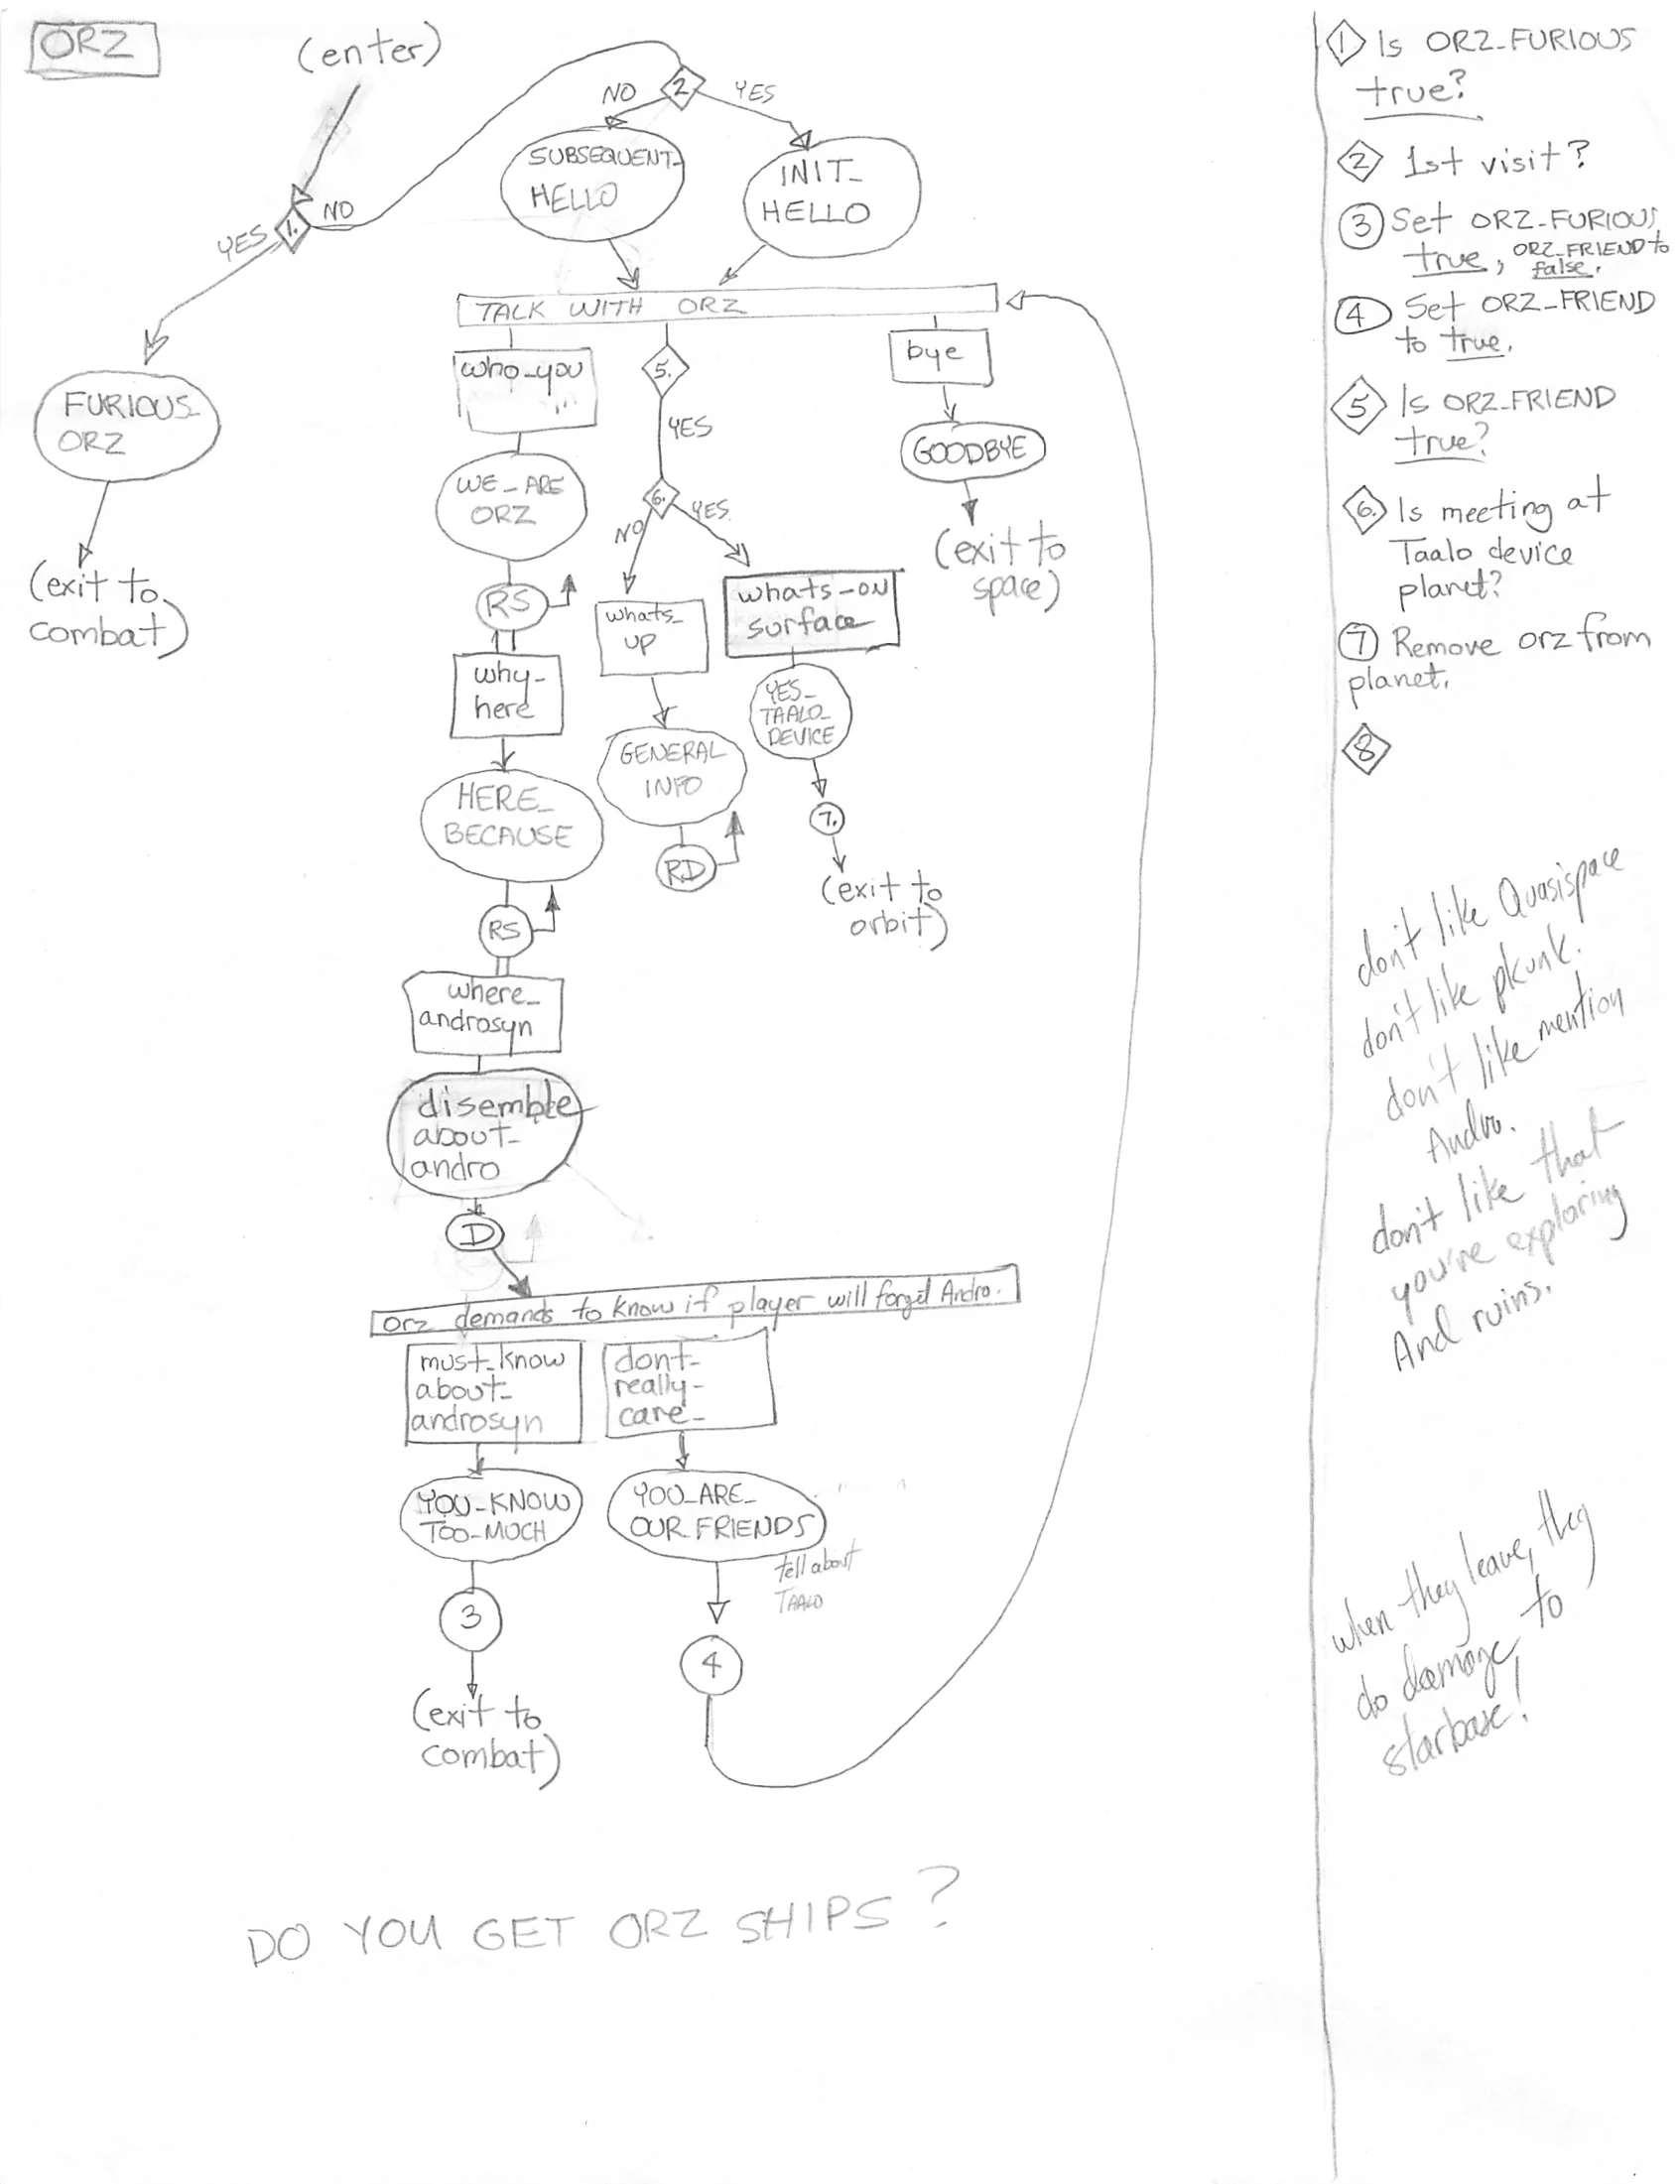 ORZ
(enter)
1.
YES
NO
2
NO
YES
SUBSEQUENT_
HELLO
INIT_
HELLO
FURIOUS_
ORZ
(exit to
combat)
TALK WITH ORZ
who_you
WE_ARE
ORZ
RS
why_
here
HERE_
BECAUSE
RS
where_
androsyn
disemble
about_
andro
D
5.
YES
6.
NO
YES
whats_
up
GENERAL
INFO
RD
whats_on
surface
YES_
TAALO_
DEVICE
7.
(exit to
orbit)
bye
GOODBYE
(exit to
space)
Orz demands to know if player will forget Andro.
must_know
about_
androsyn
YOU_KNOW
TOO_MUCH
3
(exit to
combat)
dont_
really_
care_
YOU_ARE_
OUR_FRIENDS
tell about
TAALO
4
DO YOU GET ORZ SHIPS?
1 Is ORZ_FURIOUS
true?
2 1st visit?
3 Set ORZ_FURIOUS
true, ORZ_FRIEND to
false.
4 Set ORZ_FRIEND
to true.
5 Is ORZ_FRIEND
true?
6. Is meeting at
Taalo device
planet?
7 Remove orz from
planet.
8
don't like Quasispace
don't like pkunk.
don't like mention
Andro.
don't like that
you're exploring
And ruins.
when they leave, they
do damage to
starbase!